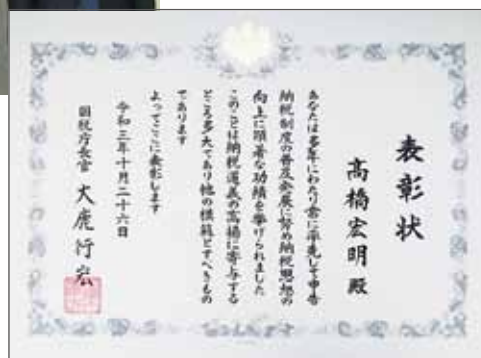 表彰状
髙橋宏明殿
あなたは多年にわたり常に率先して申告
納税制度の普及発展に努め納税思想の
向上に顕著な功績を挙げられました
このことは納税道義の高揚に寄与する
ところ多大であり他の模範とすべきもの
であります
よってここに表彰します
令和三年十月二十六日
国税庁長官 大鹿行宏